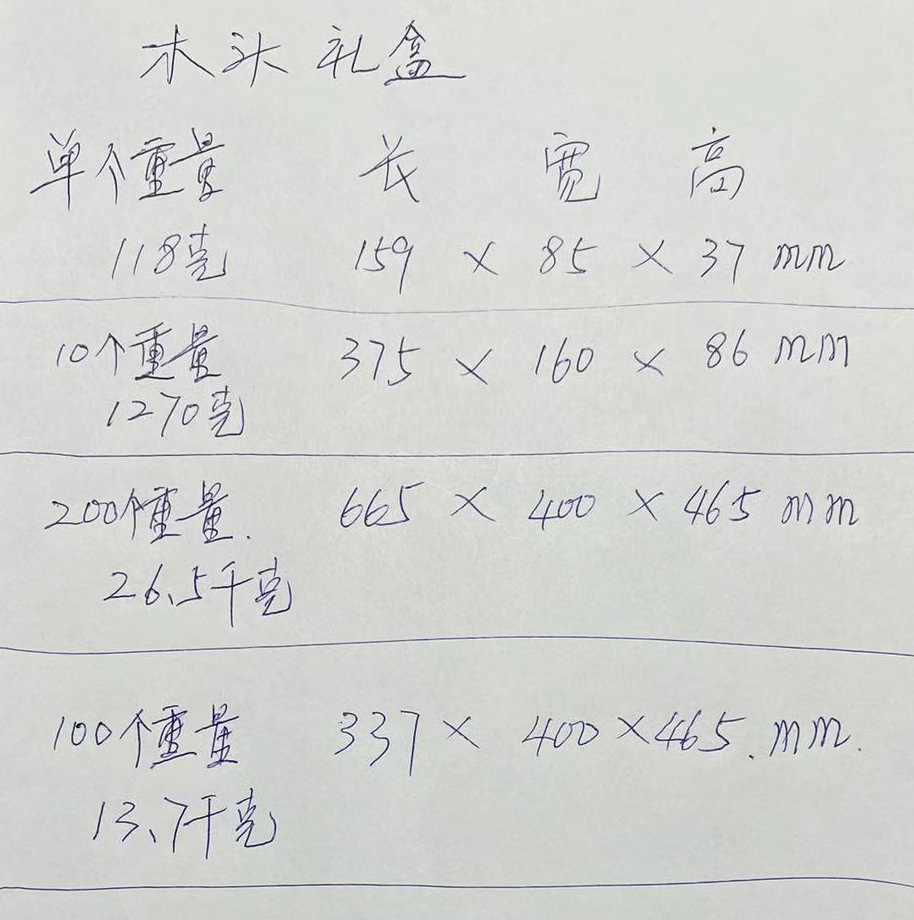 木头礼盒
单个重量 长 宽 高
118克 159 × 85 × 37 mm
10个重量 375 × 160 × 86 mm
1270克
200个重量. 665 × 400 × 465 mm
26.5千克
100个重量 337 × 400 × 465. mm.
13.7千克